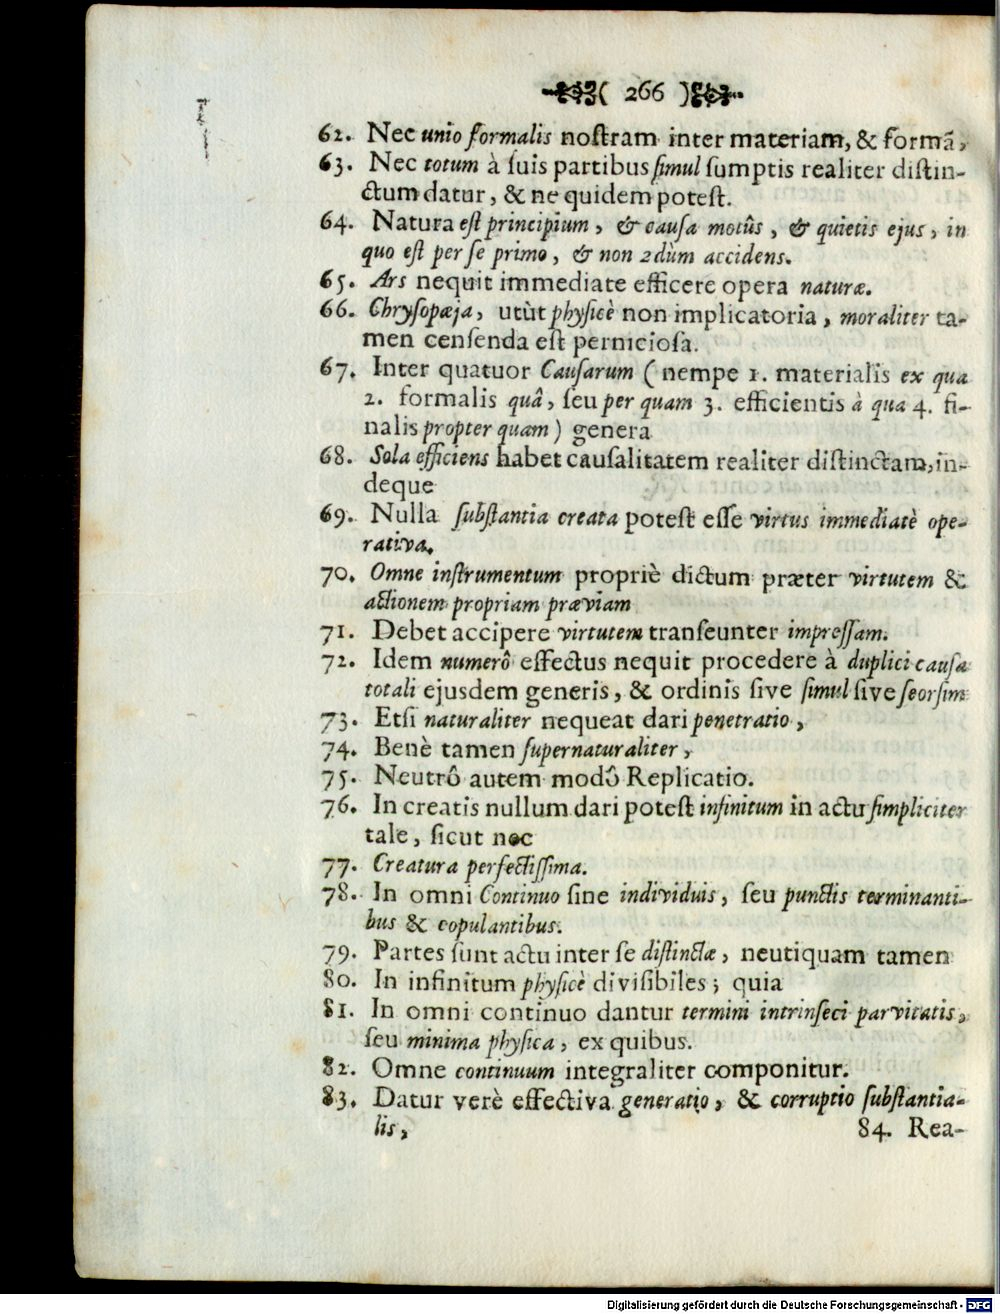 ( 266 )
62. Nec unio formalis nostram inter materiam, & formã,
63. Nec totum à ſuis partibus ſimul ſumptis realiter diſtin-
ctum datur, & ne quidem poteſt.
64. Natura eſt principium, & cauſa motûs, & quietis ejus, in
quo eſt per ſe primo, & non 2dùm accidens.
65. Ars nequit immediate efficere opera naturæ.
66. Chryſopæja, utùt phyſicè non implicatoria, moraliter ta-
men cenſenda eſt pernicioſa.
67. Inter quatuor Cauſarum ( nempe 1. materialis ex qua
2. formalis quâ, ſeu per quam 3. efficientis à qua 4. fi-
nalis propter quam ) genera
68. Sola efficiens habet cauſalitatem realiter diſtinctam, in-
deque
69. Nulla ſubſtantia creata poteſt eſſe virtus immediatè ope-
rativa.
70. Omne inſtrumentum propriè dictum præter virtutem &
actionem propriam præviam
71. Debet accipere virtutem tranſeunter impreſſam.
72. Idem numerô effectus nequit procedere à duplici cauſa
totali ejusdem generis, & ordinis ſive ſimul ſive ſeorſim
73. Etſi naturaliter nequeat dari penetratio,
74. Benè tamen ſupernaturaliter,
75. Neutrô autem modô Replicatio.
76. In creatis nullum dari poteſt infinitum in actu ſimpliciter
tale, ſicut nec
77. Creatura perfectiſſima.
78. In omni Continuo ſine individuis, ſeu punctis terminanti-
bus & copulantibus.
79. Partes ſunt actu inter ſe diſtinctæ, neutiquam tamen
80. In infinitum phyſicè diviſibiles; quia
81. In omni continuo dantur termini intrinſeci parvitatis,
ſeu minima phyſica, ex quibus.
82. Omne continuum integraliter componitur.
83. Datur verè effectiva generatio, & corruptio ſubſtantia-
lis,
84. Rea-
Digitalisierung gefördert durch die Deutsche Forschungsgemeinschaft - DFG